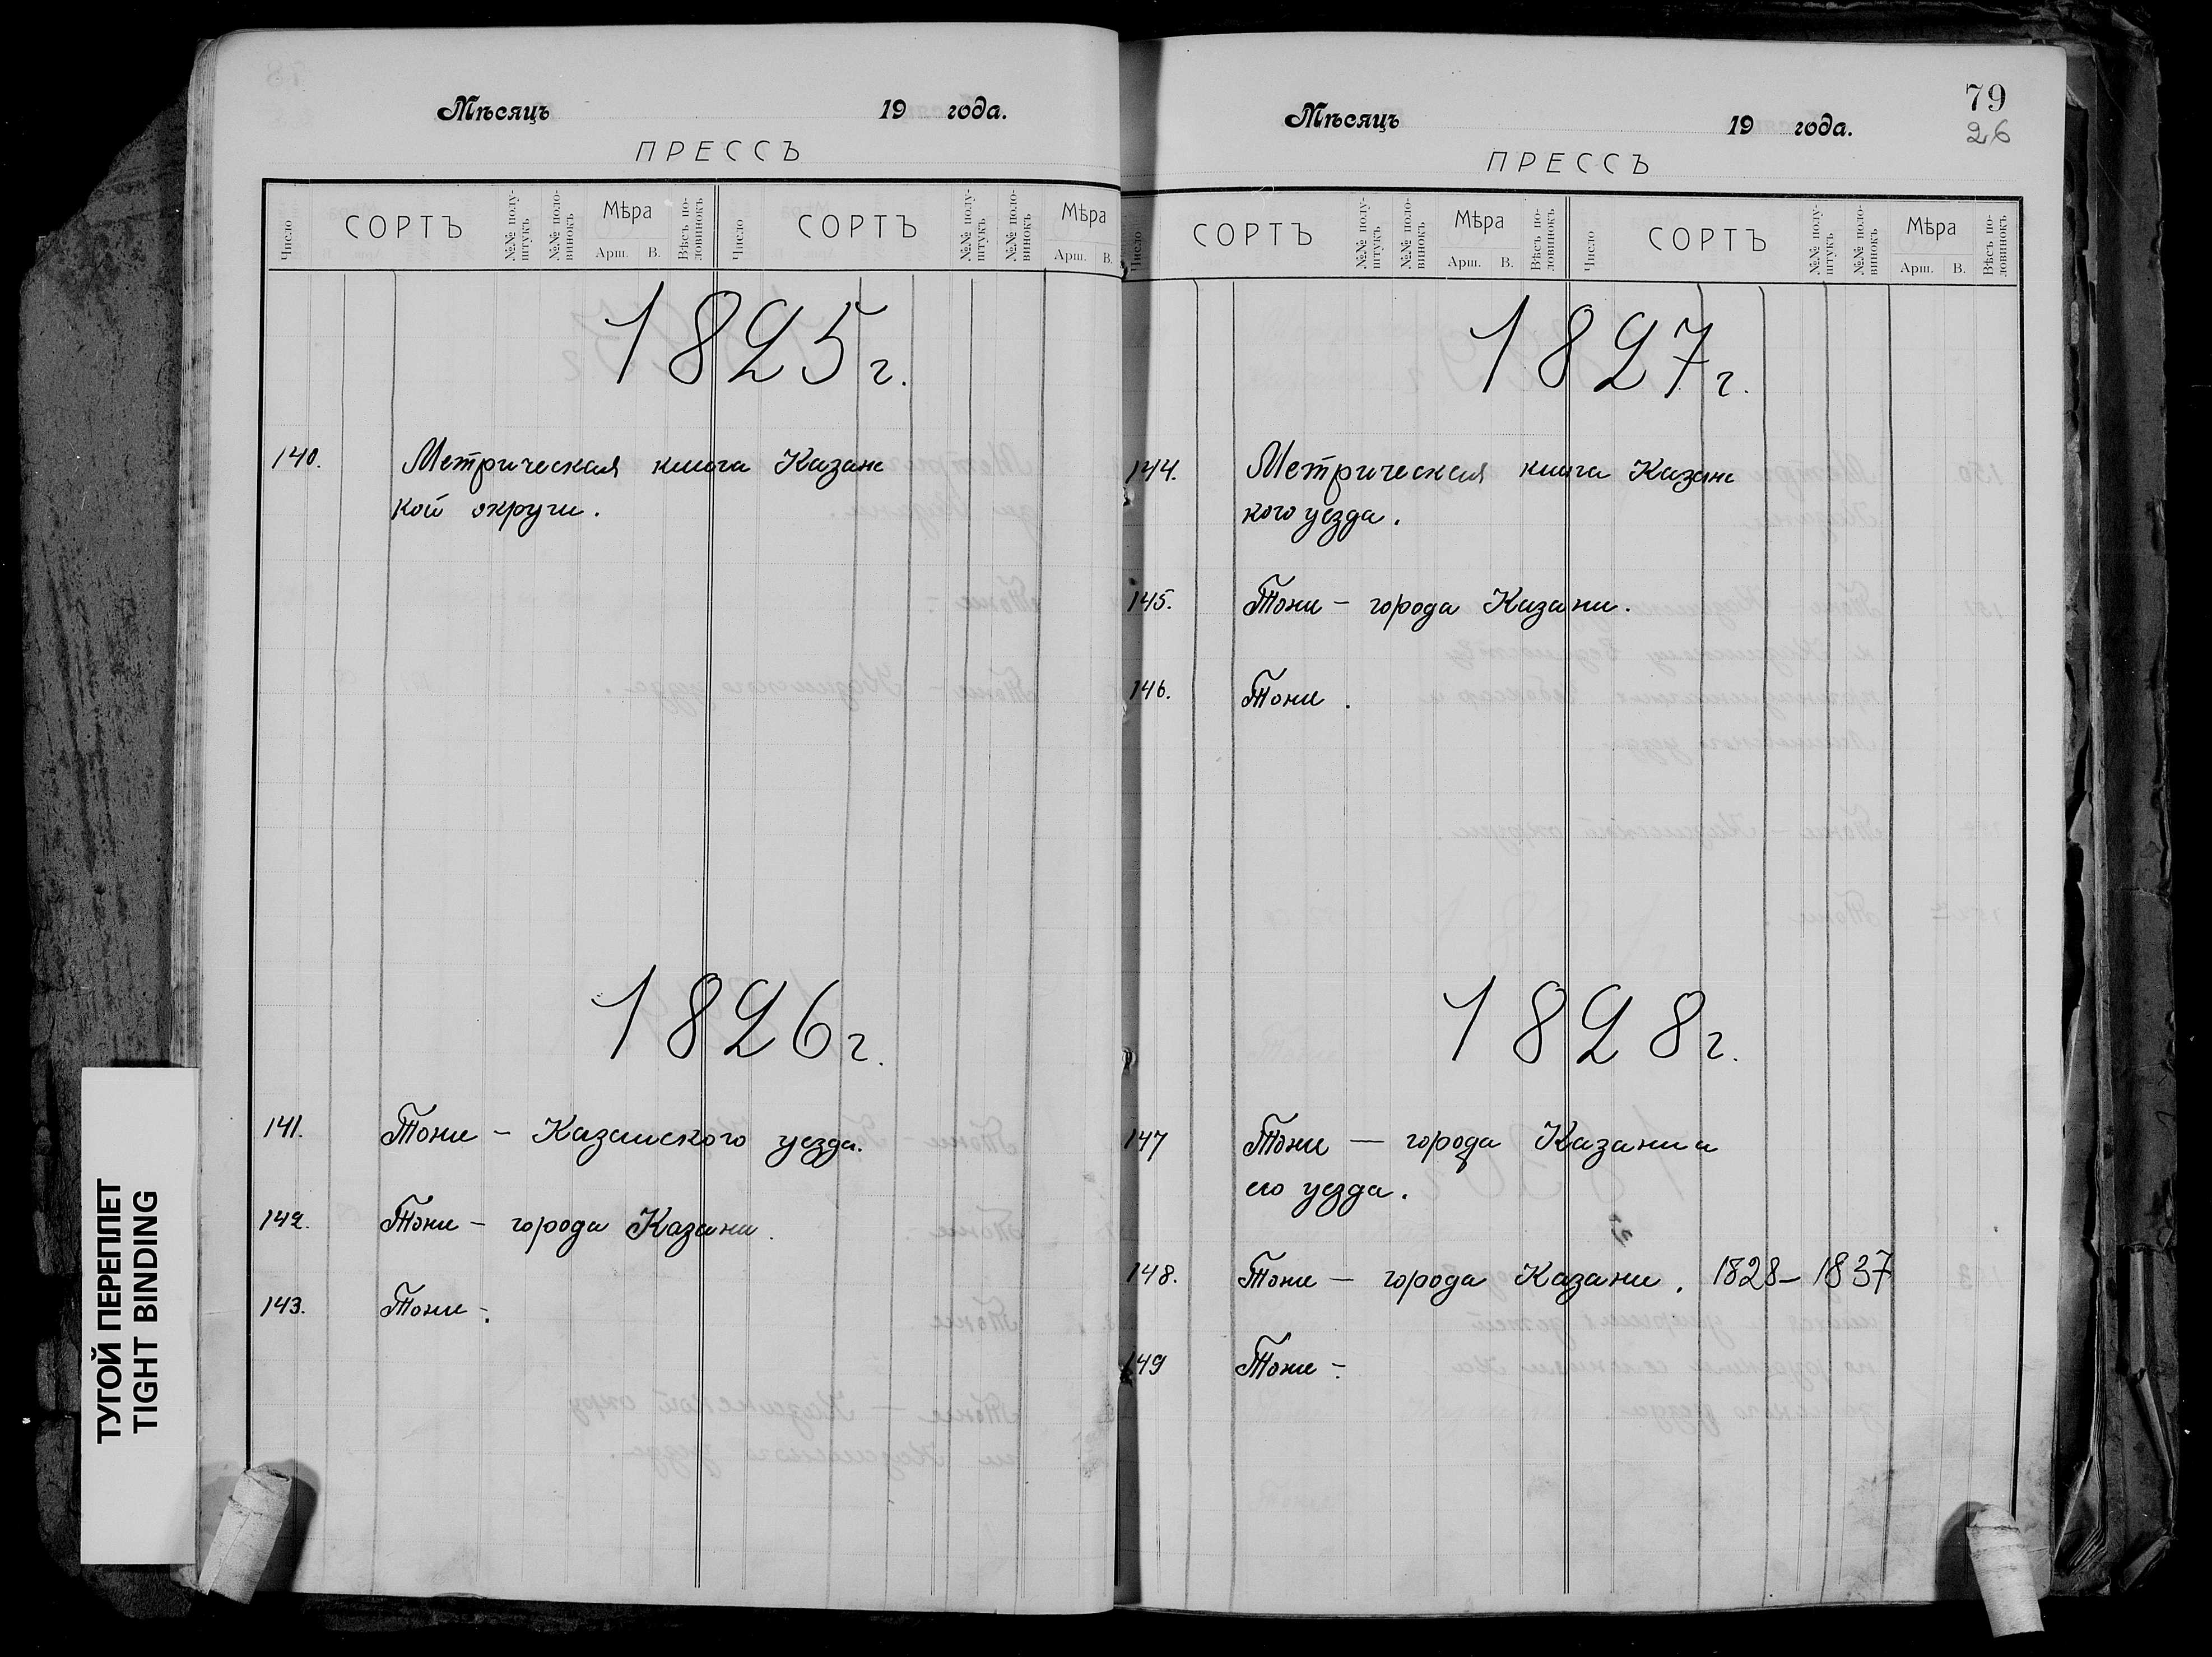 Мѣсяцъ 19 года.
ПРЕССЪ
Число СОРТЪ №№ полу-штукъ №№ поло-винокъ Мѣра Арш. В. Вѣсъ по-ловинокъ Число СОРТЪ №№ полу-штукъ №№ поло-винокъ Мѣра Арш. В.
1825 г.
140. Метрическая книга Казанс
кой округи.
1826 г.
141. Тоже - Казанского уезда.
142. Тоже - города Казани.
143. Тоже -.
ТУГОЙ ПЕРЕПЛЕТ
TIGHT BINDING
79
26
Мѣсяцъ 19 года.
ПРЕССЪ
Число СОРТЪ №№ полу-штукъ №№ поло-винокъ Мѣра Арш. В. Вѣсъ по-ловинокъ Число СОРТЪ №№ полу-штукъ №№ поло-винокъ Мѣра Арш. В. Вѣсъ по-ловинокъ
1827 г.
144. Метрическая книга Казанс
кого уезда.
145. Тоже - города Казани.
146. Тоже.
1828 г.
147 Тоже — города Казани и
его уезда.
148. Тоже — города Казани. 1828-1837
149 Тоже -.